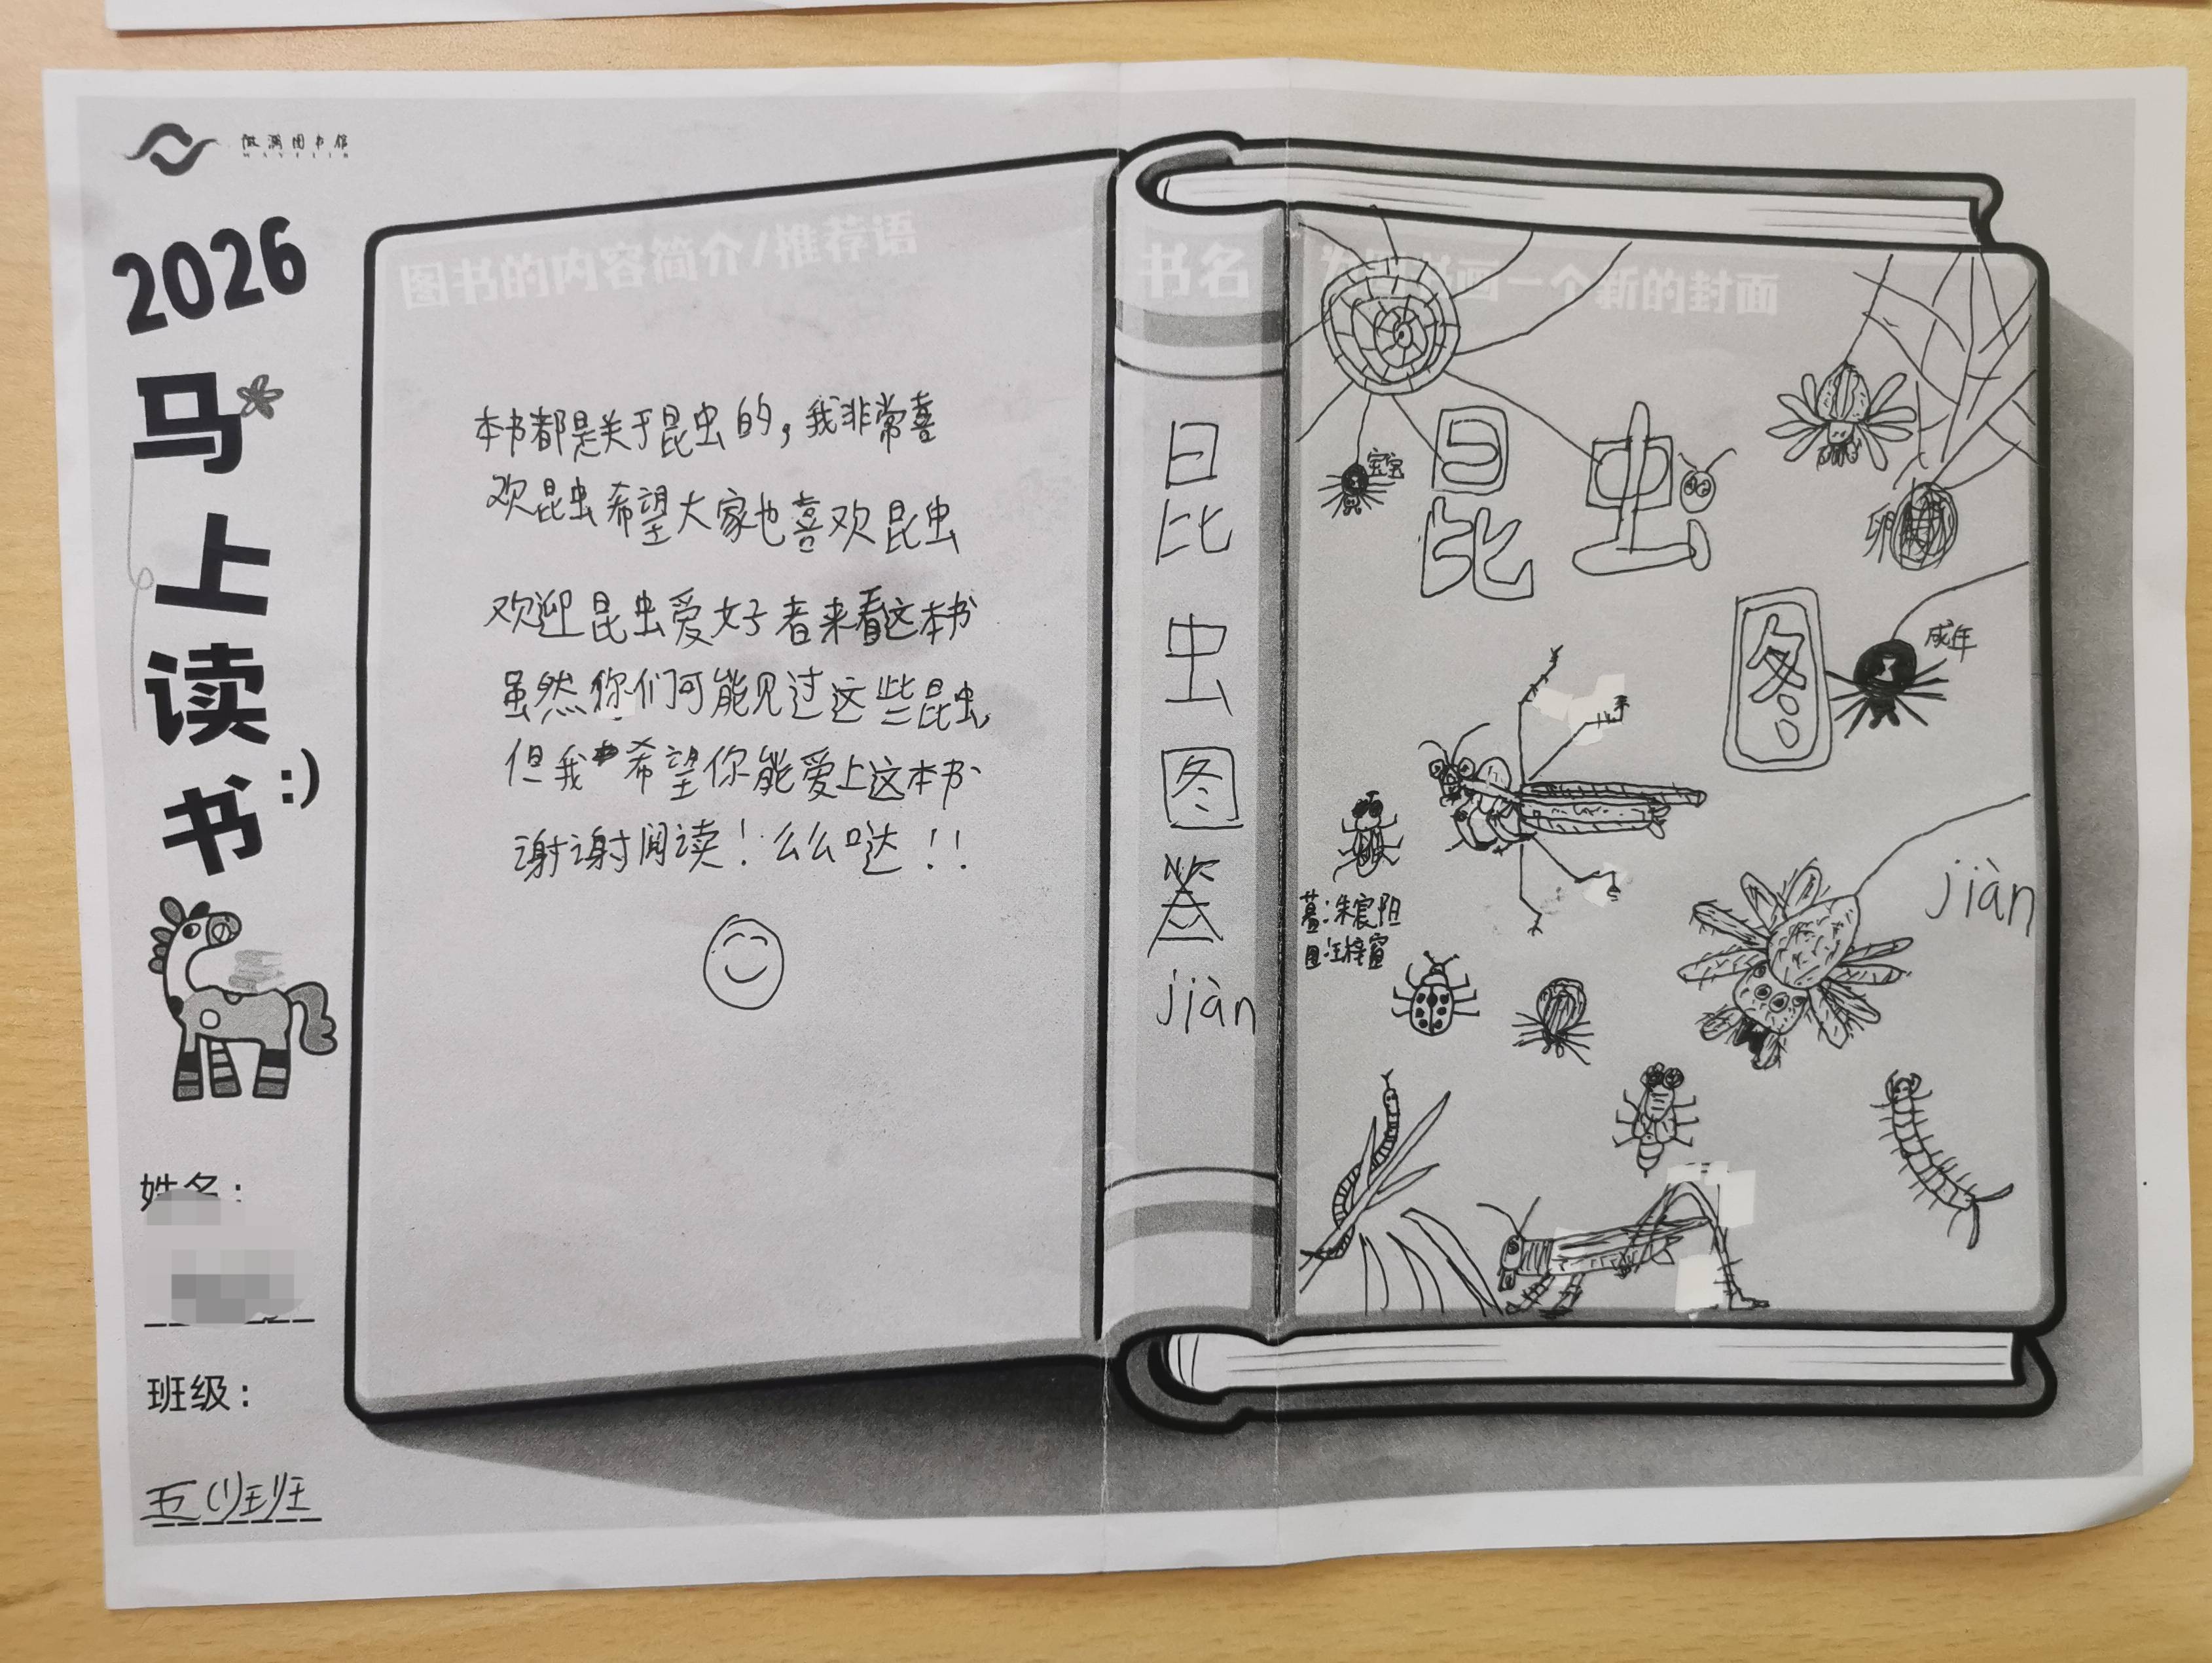 微澜图书馆
2026
马上读书:)
姓名：
班级：
五(1)班
图书的内容简介/推荐语
本书都是关于昆虫的，我非常喜
欢昆虫希望大家也喜欢昆虫
欢迎昆虫爱好者来看这本书
虽然你们可能见过这些昆虫
但我希望你能爱上这本书
谢谢阅读！么么哒！！
书名
昆虫图
jiàn
画一个新的封面
昆虫
图
jiàn
宝宝
卵
成年